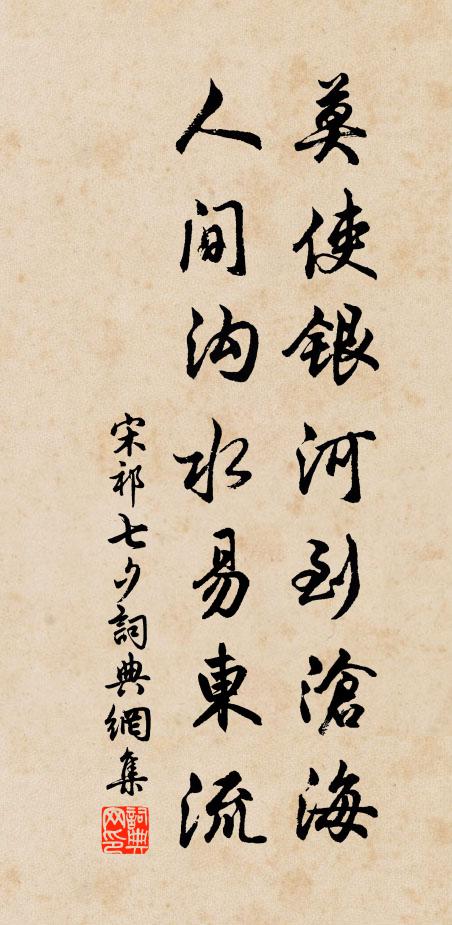 莫使銀河到滄海
人間沟水易東流
宋祁七夕詞典網集
詞典网印